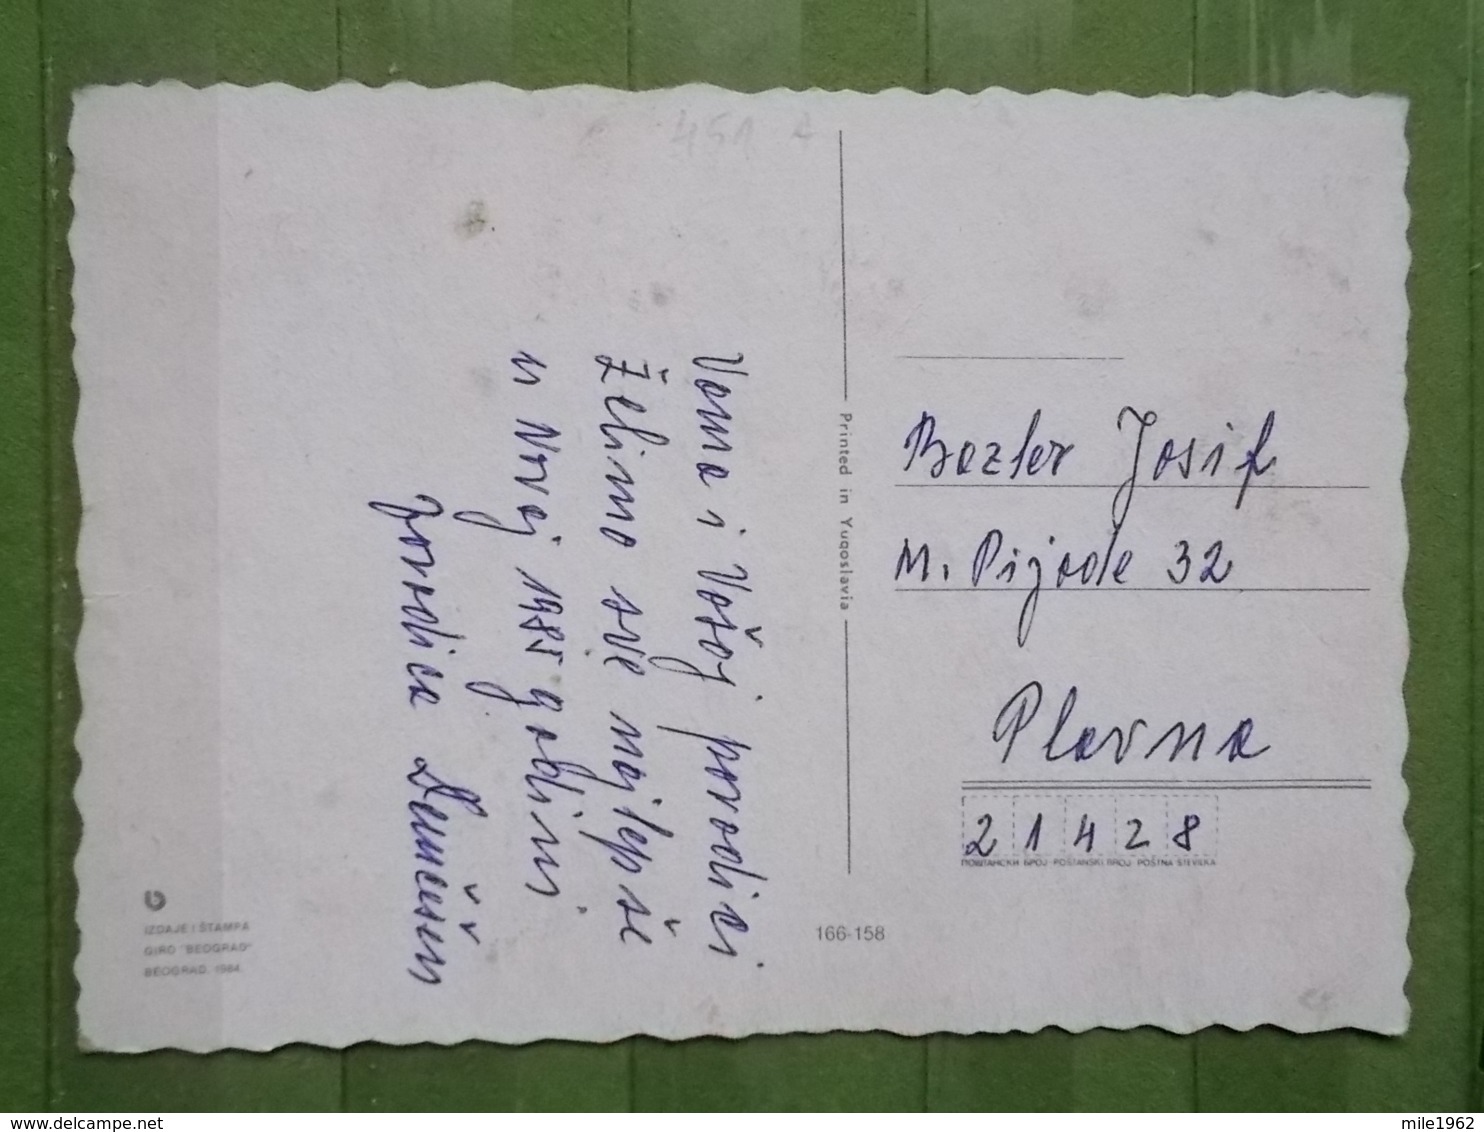 451
Vama i Vašoj porodici
želimo sve najlepše
u Novoj 1985 godini
porodica
Printed in Yugoslavia
Bezler Josif
M. Pijade 32
Plavna
21428
ПОШТАНСКИ БРОЈ-POŠTANSKI BROJ-POŠTNA ŠTEVILKA
166-158
IZDAJE I ŠTAMPA
GIRO "BEOGRAD"
BEOGRAD, 1984.
delcampe.net
mile1962